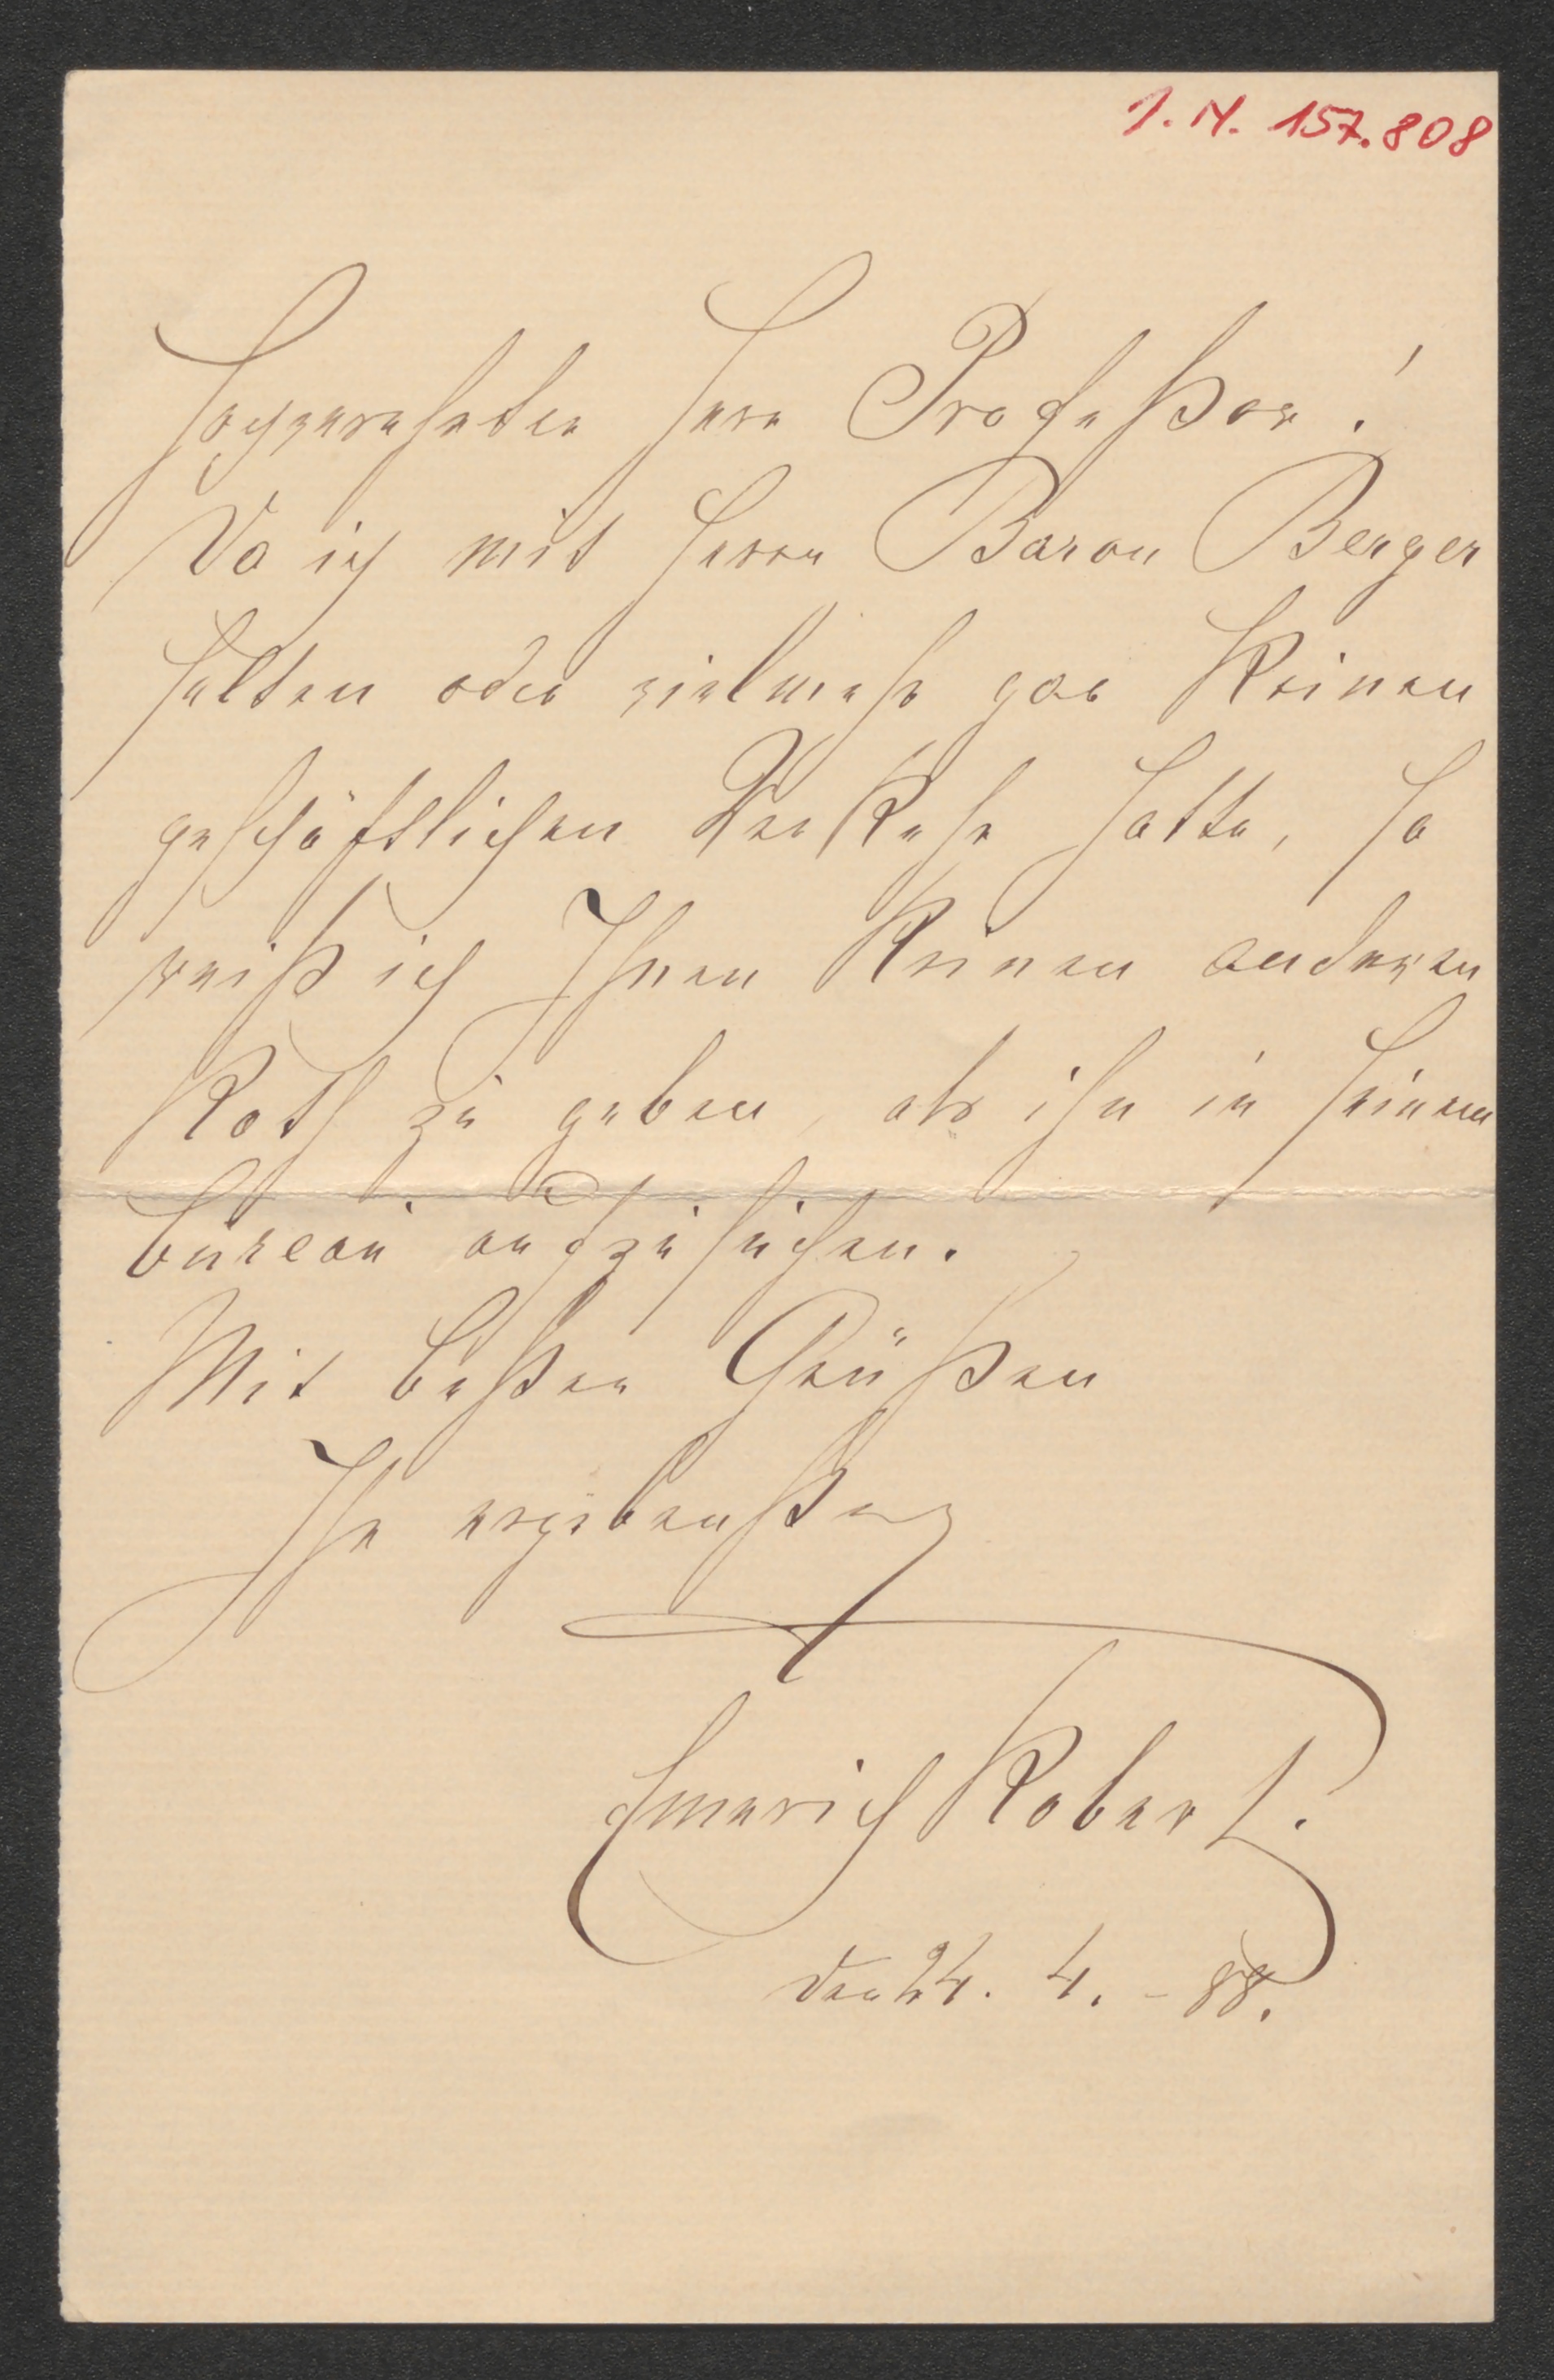 I. N. 157.808
Hochverehrter Herr Profeßor!
Da ich mit Herrn Baron Berger
selten oder vielmehr gar keinen
geschäftlichen Verkehr hatte, so
weiß ich Ihnen keinen anderen
Rath zu geben, als ihn in seinem
bureau aufzusuchen.
Mit besten Grüßen
Ihr ergebenster
Emerich Robert.
den 24. 4. - 88.